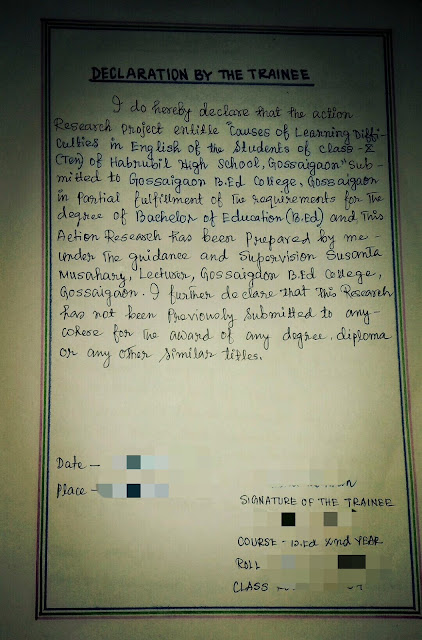 DECLARATION BY THE TRAINEE
I do hereby declare that the action
Research project entitle "Causes of Learning Diffi-
culties in English of the Students of class-X
(Ten) of Habrubil High School, Gossaigaon" Sub-
mitted to Gossaigaon B.Ed College, Gossaigaon
in Partial fulfillment of the requirements for the
degree of Bachelor of Education (B.Ed) and This
Action Research has been Prepared by me-
under the guidance and Supervision Susanta
Musahary, Lecturer, Gossaigaon B.Ed College,
Gossaigaon. I further declare that this Research
has not been Previously Submitted to any-
where for the award of any degree, diploma
or any other similar titles.
Date -
Place -
SIGNATURE OF THE TRAINEE
COURSE - B.Ed IInd YEAR
ROLL
CLASS